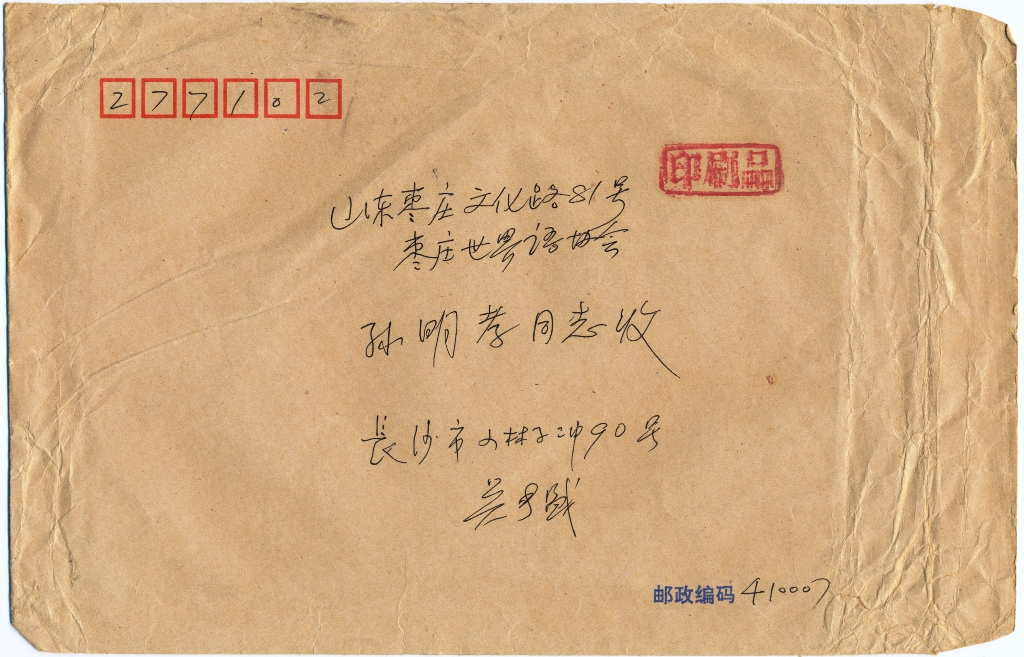 277102
印刷品
山东枣庄文化路81号
枣庄世界语协会
孙明孝同志收
長沙市林子冲90号
邮政编码 410007